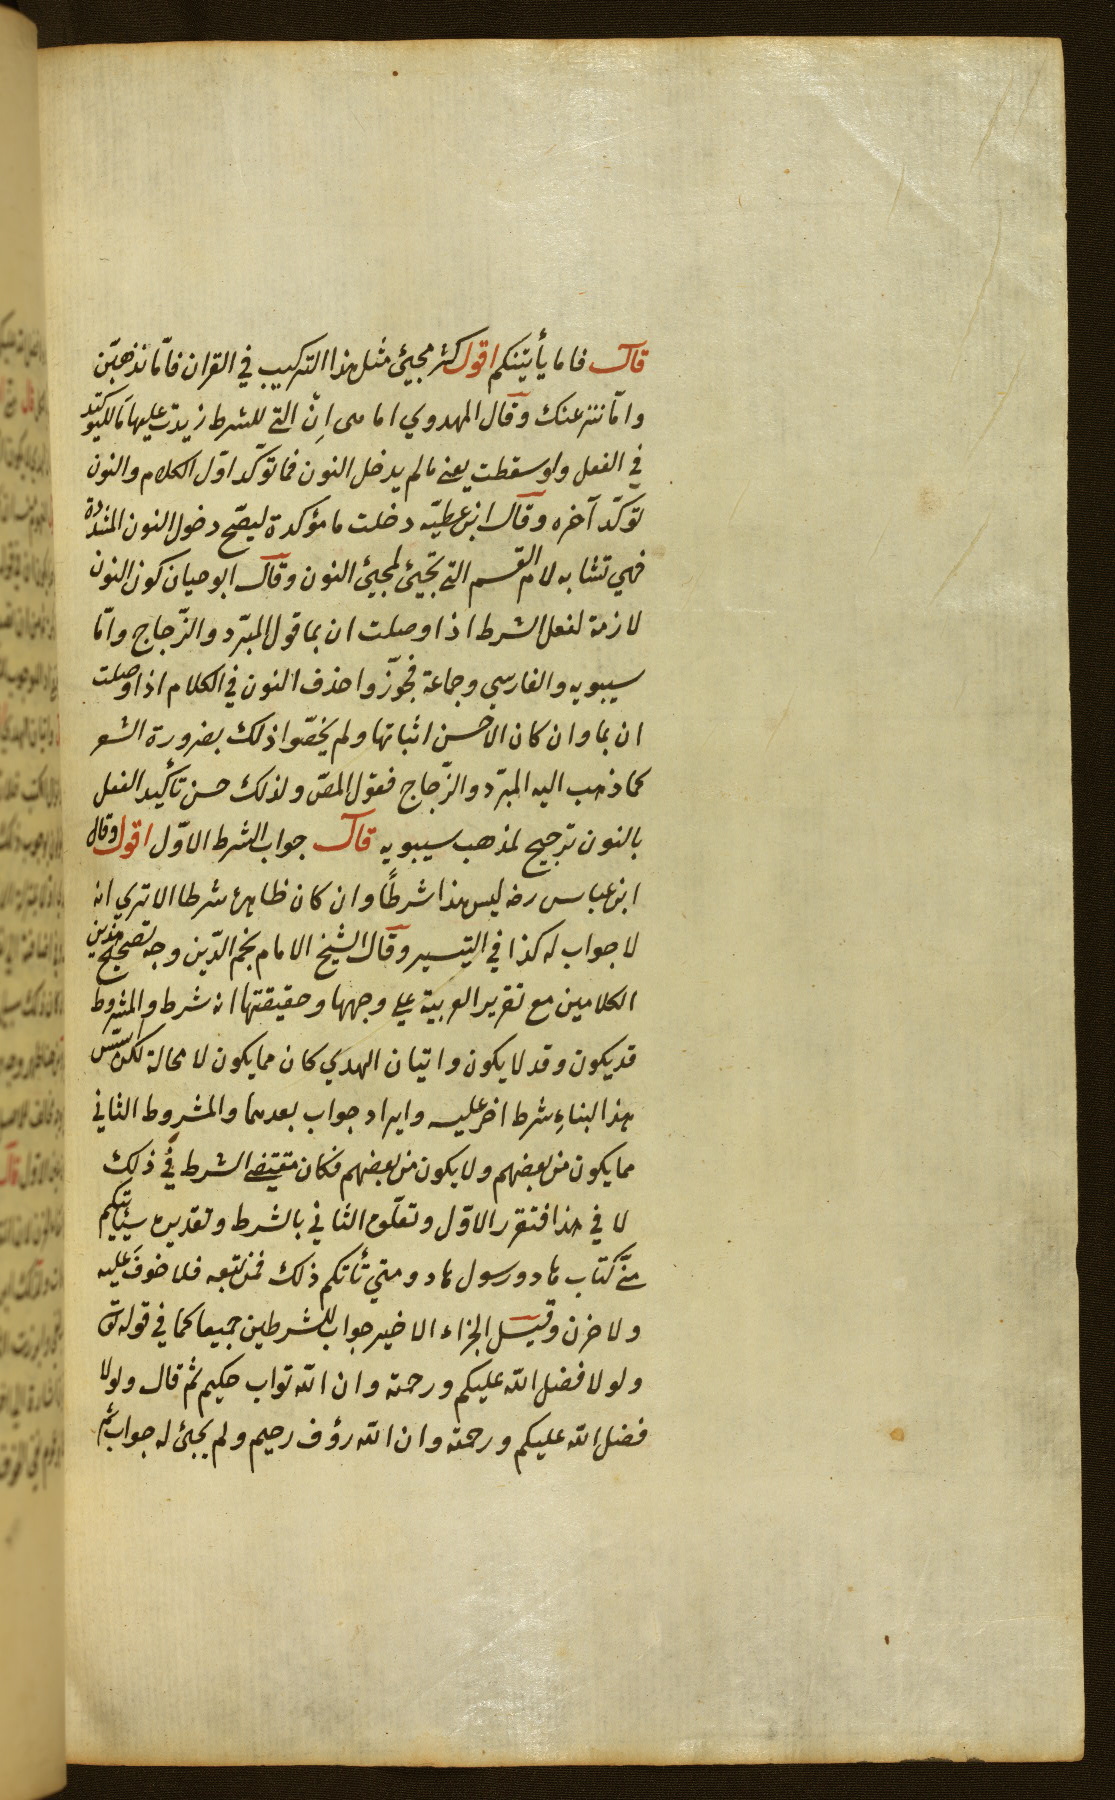 قال فاما يأتينكم اقول كثر مجيئ مثل هذا التركيب في القران فامّا نذهبنّ
وامّا ننزعنك وقال المهدوي اما هى اِن التي للشرط زيدت عليها ما لليؤكّد
في الفعل ولو سقطت يعنى ما لم يدخل النون فما توكّد اوّل الكلام والنون
توكّد آخره وقال ابن عطيّه دخلت ما مؤكدة ليصّح دخول النون المشددة
فهي تشابه لام القسم التي تجيئ لمجيئ النون وقال ابو حيان كون النون
لازمة لفعل الشرط اذا وصلت ان بما قول المبرّد والزّجاج وامّا
سيبويه والفارسي وجماعة فجوّزوا حذف النون في الكلام اذا وصلت
ان بما وان كان الاحسن اثباتها ولم يخصّوا ذلك بضرورة الشعر
كما ذهب اليه المبرّد والزّجاج فقول المصّ ولذلك حسن تأكيد الفعل
بالنون ترجيح لمذهب سيبويه قال جواب الشرط الاوّل اقول وقال
ابن عباس رضه ليس هذا شرطًا وان كان ظاهره شرطا الا ترى انه
لا جواب له كذا في التيسير وقال الشيخ الامام نجم الدّين وجه تصحيح هذين
الكلامين مع تقرير العربية على وجهها وحقيقتها انه شرط والمشروط
قد يكون وقد لا يكون واتيان الهدي كان مما يكون لا محالة لكن
هذا البناءِ شرط اخر عليه وايراد جواب بعدهما والمشروط الثاني
مما يكون من بعضهم ولا يكون من بعضهم فكان مقتضى الشرط في ذلك
لا في هذا فتقرر الاوّل وتعلّق الثاني بالشرط وتقديره سيأتيكم
منّى كتاب هاد ورسول هاد ومتي تأتكم ذلك فمن تبعه فلا خوفَ عليه
ولا حزن وقيل الجزاء الاخير جواب للشرطين جميعا كما في قوله تع
ولولا فضل الله عليكم ورحمته وان الله تواب حكيم ثم قال ولولا
فضل الله عليكم ورحمته وان الله رؤف رحيم ولم يجئ له جواب ثم